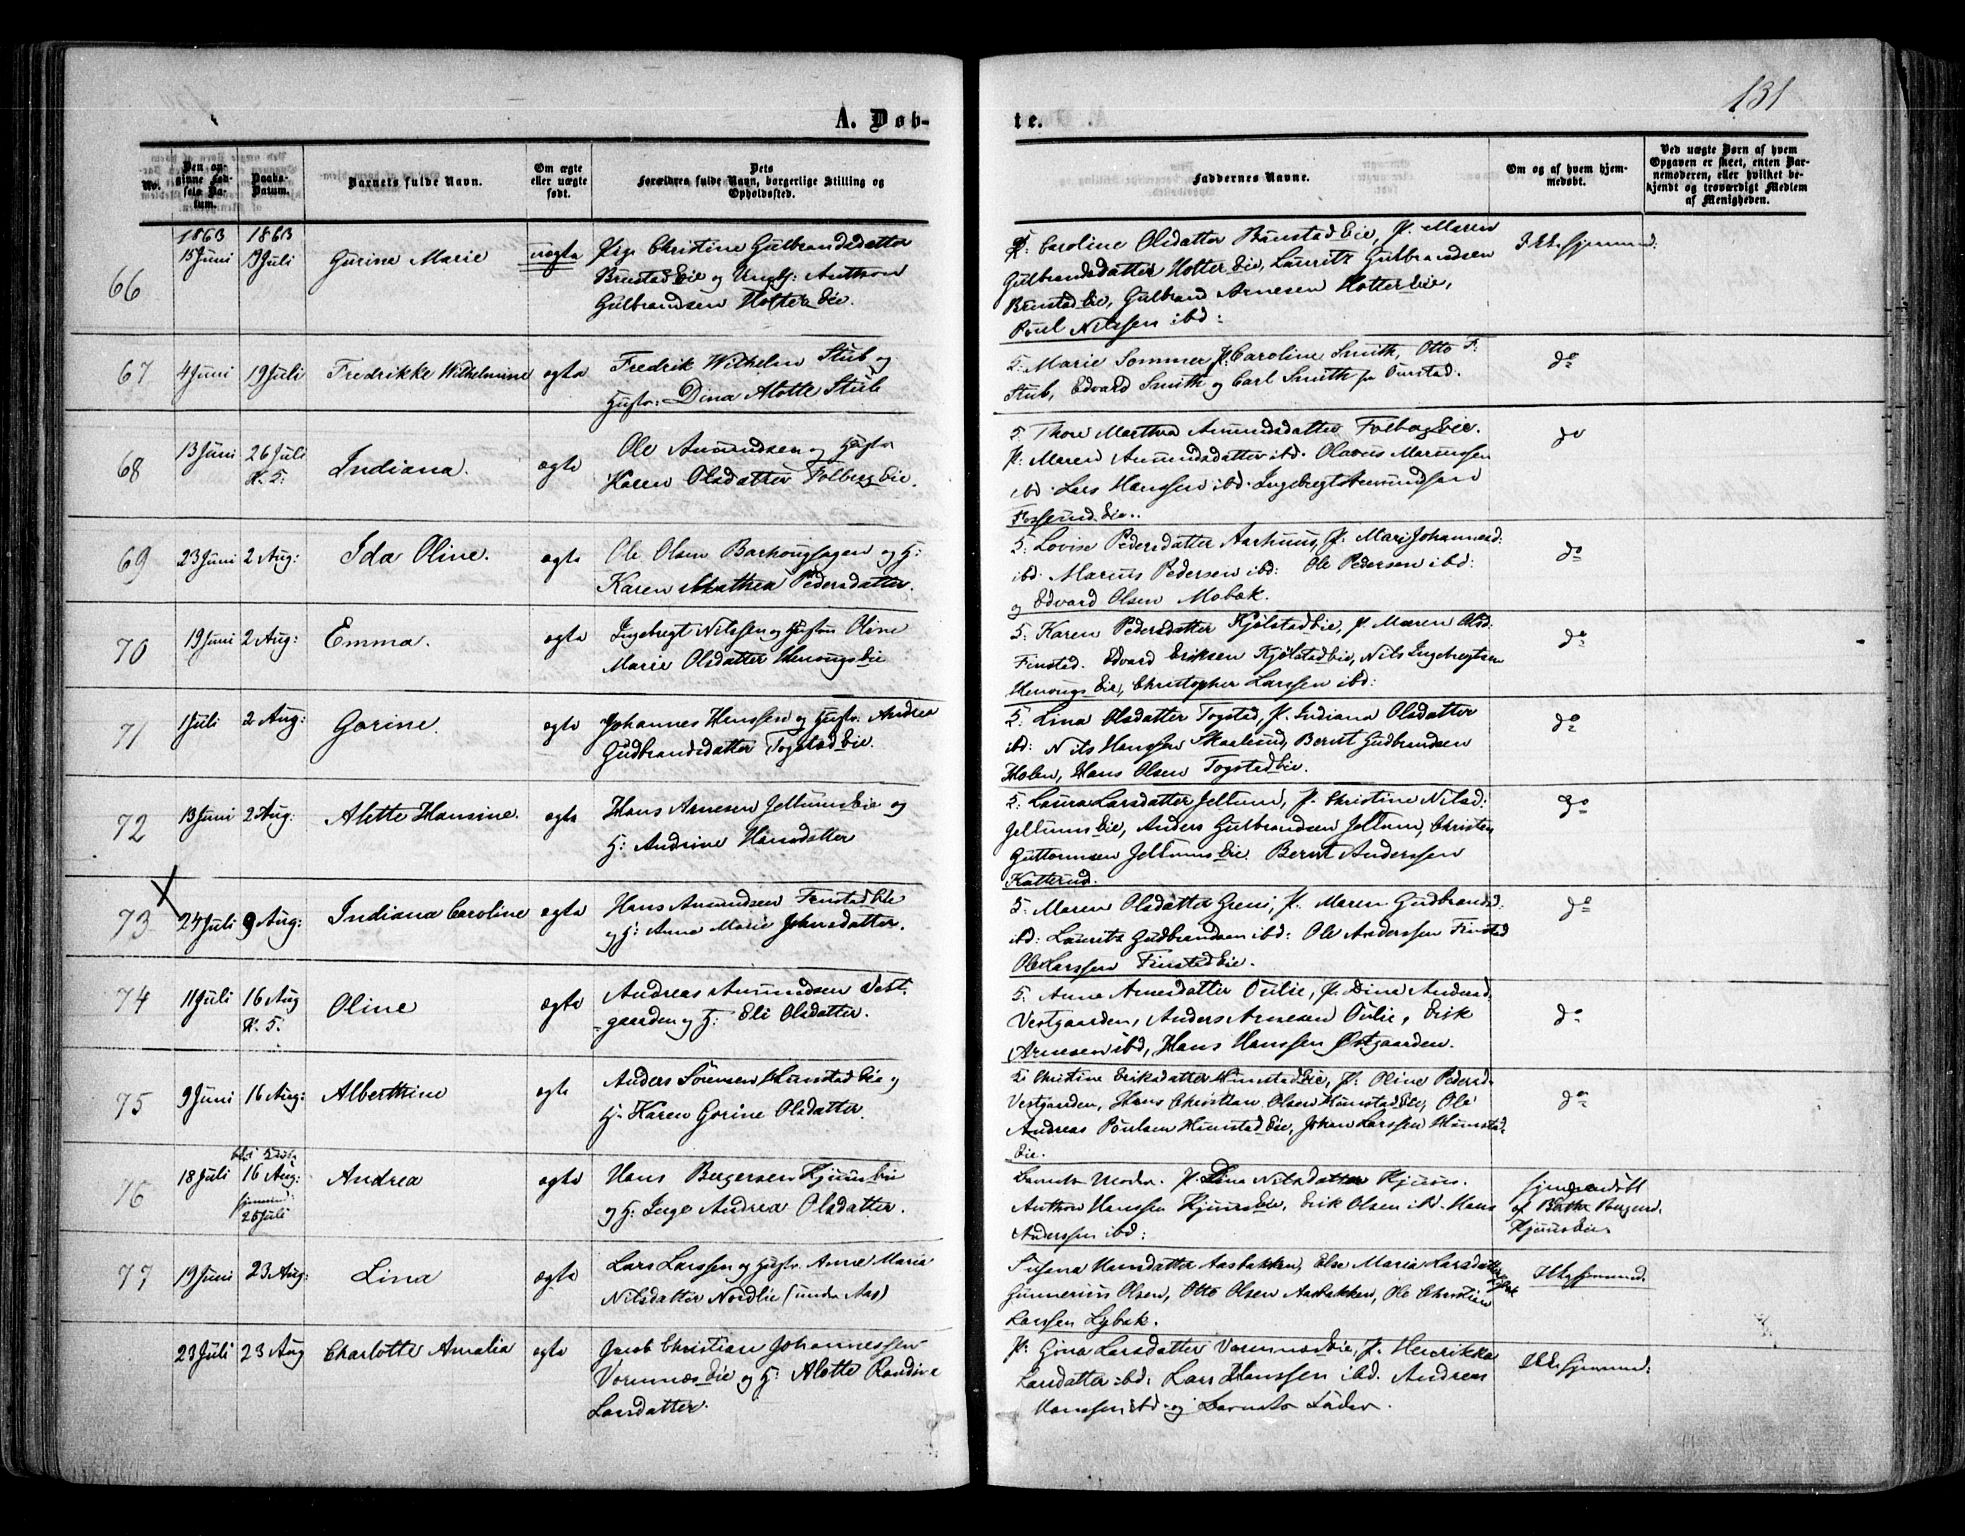 131
A. Døb-
te.
No.
Den op-
givne Fød-
sels Da-
tum.
Daabs-
Datum.
Barnets fulde Navn.
Om ægte
eller uægte
født.
Dets
Forældres fulde Navn, borgerlige Stilling og
Opholdssted.
Faddernes Navne.
Om og af hvem hjem-
medøbt.
Ved uægte Børn af hvem
Opgaven er skeet, enten Bar-
nemoderen, eller hvilket be-
kjendt og troværdigt Medlem
af Menigheden.
1863 1863
66 15 Juni 19 Juli Gurine Marie uægte Pige Christine Gulbrandsdatter
Brustad Eie og Ungk: Anthon
Gulbrandsen Hotter Eie.
P: Caroline Olsdatter Brustad Eie, P. Maren
Gulbrandsdatter Hotter Eie, Lauritz Gulbrandsen
Brustad Eie, Gulbrand Arnesen Hotter Eie,
Poul Nilssen ibd:
Ikke hjemmed:
67 4 Juni 19 Juli Fredrikke Wilhelmine ægte Fredrik Wilhelm Stub og
Hustr: Dina Alotte Stub
5: Marie Sommer P: Caroline Smith, Otto F:
Stub, Edvard Smith og Carl Smith fra Onstad.
do
68 13 Juni 26 Juli
K. 5: Indiana. ægte Ole Amundsen og Hustr
Karen Olsdatter Folberg Eie.
5: Thore Marthea Amundsdatter Folberg Eie.
P: Maren Amundsdatter ibd. Olavus Mariussen
ibd. Lars Hanssen ibd. Ingebregt Amundsen
Fosserud Eie.
do
69 23 Juni 2 Aug: Ida Oline. ægte Ole Olsen Barhoughagen og H:
Karen Mathea Pedersdatter.
5: Lovise Pedersdatter Aarhuus, P. Mari Johannesd:
ibd. Marius Pedersen ibd: Ole Pedersen ibd:
og Edvard Olsen Mobæk.
do
70 19 Juni 2 Aug: Emma. ægte Ingebregt Nilssen og Hustru Oline
Marie Olsdatter Henongs Eie
5: Karen Pedersdatter Kjølstad Eie, P. Maren Olsd:
Finstad. Edvard Eriksen Kjølstad Eie, Nils Ingebregtsen
Henongs Eie, Christopher Larssen ibd:
do
71 1 Juli 2 Aug: Gorine. ægte Johannes Hanssen og Hustr. Andrea
Gudbrandsdatter Togstad Eie.
5: Lina Olsdatter Togstad, P. Indiana Olsdatter
ibd: Nils Hanssen Skaalerud, Bernt Gudbrandsen
Holen, Hans Olsen Togstad Eie.
do
72 13 Juni 2 Aug: Alette Hansine. ægte Hans Arnesen Jeltums Eie og
H: Andrine Hansdatter
5: Laura Larsdatter Jeltum, P. Christine Nilsd:
Jeltums Eie, Anders Gulbrandsen Jeltum, Christen
Guttormsen Jeltums Eie. Bernt Anderssen
Katterud.
do
73 24 Juli 9 Aug: Indiana Caroline ægte Hans Amundsen Finstad Eie
og H: Anne Marie Johnsdatter.
5: Maren Olsdatter Greni, P. Maren Gudbrandsd:
ibd: Lauritz Gudbrandsen ibd: Ole Anderssen Finstad
Ole Larssen Finstad Eie.
do
74 11 Juli 16 Aug
K. 5: Oline ægte Andreas Amundsen Vest-
gaarden og H: Eli Olsdatter.
5. Anne Arnesdatter Oulie, P. Dina Andersd.
Vestgaarden, Anders Arnesen Oulie, Erik
Arnesen ibd, Hans Hanssen Østgaarden.
do
75 9 Juni 16 Aug: Alberthine ægte Anders Sørensen Hunstad Eie og
H. Karen Gorine Olsdatter.
5: Christine Eriksdatter Hunstad Eie, P: Oline Pedersd.
Vestgaarden, Hans Christian Olsen Hunstad Eie, Ole
Andreas Poulsen Hunstad Eie, Johan Larssen Hunstad
Eie.
do
76 18 Juli 16 Aug:
hjemmed:
25 Juli Andrea ægte Hans Bergersen Kjuus Eie
og H: Inge Andrea Olsdatter.
Barnets Moder. P. Lina Nilsdatter Kjuus.
Anthon Hanssen Kjuus Eie, Erik Olsen ibd. Hans
Anderssen ibd:
hjemmedøbt
af Berthe Bergersd.
Kjuus Eie
77 19 Juni 23 Aug: Lina ægte Lars Larssen og Hustr. Anne Maria
Nilsdatter Nordlie (under Aas)
Susana Hansdatter Aasbakken, Else Maria Larsdatter
Gunnerius Olsen, Otto Olsen Aasbakken, Ole Christian
Larssen Lybæk.
Ikke hjemmed.
23 Juli 23 Aug Charlotte Amalia ægte Jacob Christian Johannessen
Vormnæs Eie og H: Alotte Randine
Larsdatter.
P: Gina Larsdatter Vormnæs Eie, P. Henrikke
Larsdatter ibd: Lars Hanssen ibd. Andreas
Hanssen ibd. og Barnets Fader.
Ikke hjemmed: